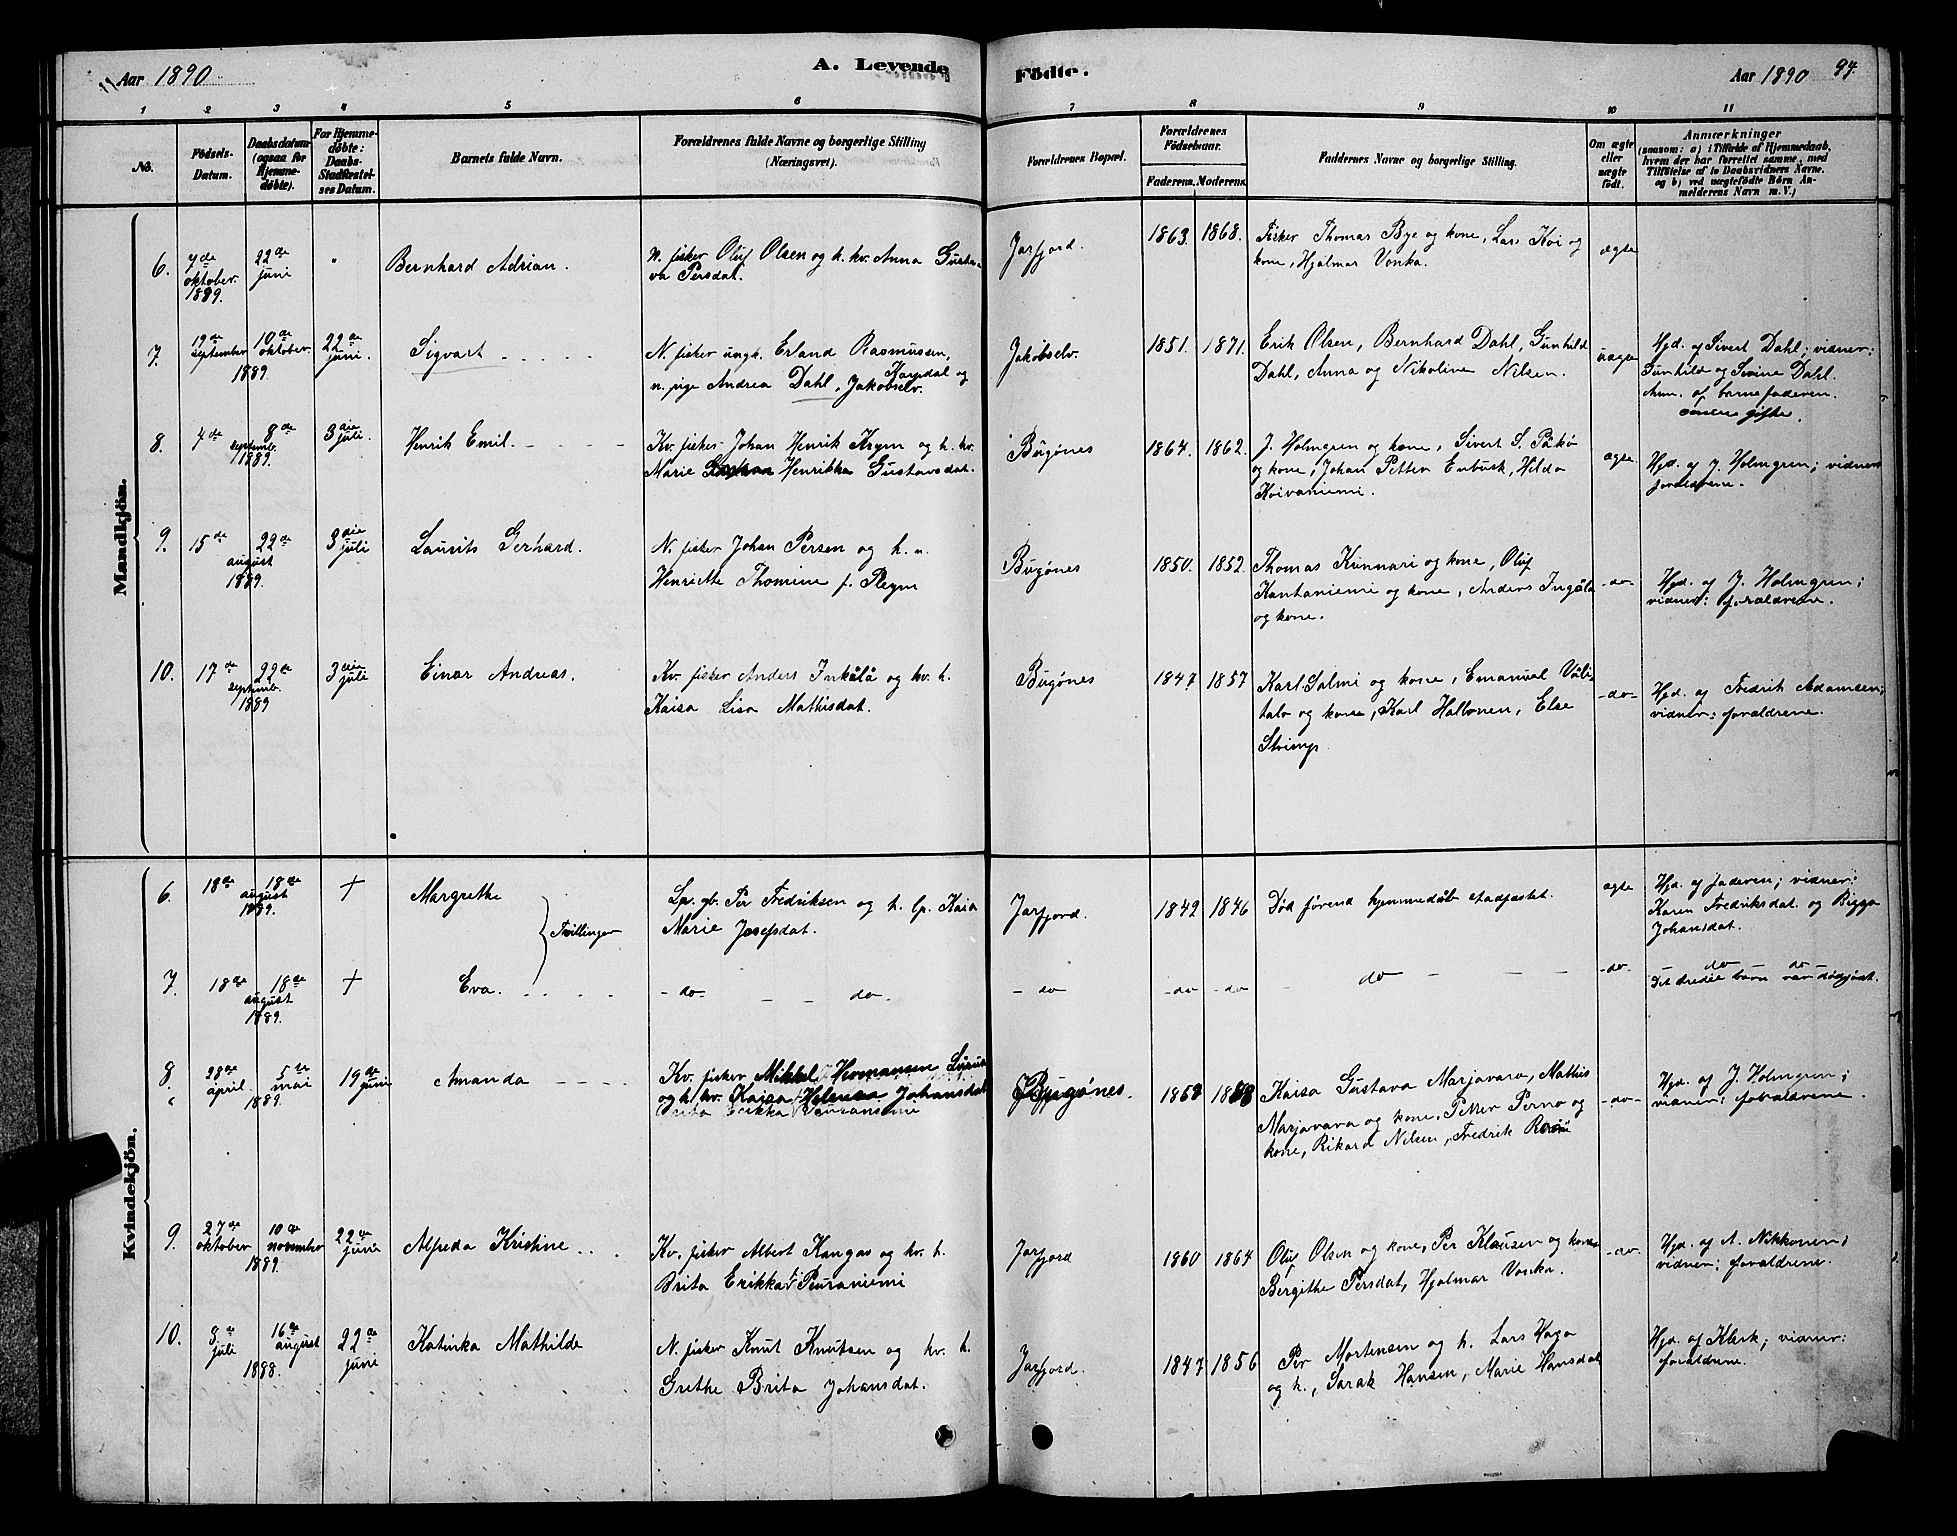 Aar 1890
A. Levende
Födte.
Aar 1890
94.
1 2 3 4 5 6 7 8 9 10 11
No.
Födsels-
Datum.
Daabsdatum
(ogsaa for
Hjemme-
döbte).
For Hjemme-
döbte:
Daabs-
Stadfæstel-
ses Datum.
Barnets fulde Navn.
Forældrenes fulde Navne og borgerlige Stilling
(Næringsvei).
Forældrenes Bopæl.
Forældrenes
Födselsaar.
Faderens. Moderens.
Faddernes Navne og borgerlige Stilling.
Om ægte
eller
uægte
födt.
Anmærkninger
(saasom: a) i Tilfælde af Hjemmedaab,
hvem der har forrettet samme, med
Tilföielse af to Daabsvidners Navne,
og b) ved uægtefödte Börn An-
melderens Navn m. V.)
Mandkjön.
6.
oktober
1889.
22de
juni
"
Bernhard Adrian.
N. fisker Oluf Olsen og h. kv. Anna Gusta
va Persdat.
Jarfjord.
1863. 1868.
Fisker Thomas Bye og kone, Lars Koi og
kone, Hjalmar Vonka.
ægte
7.
19de
september
10de
oktober
1889.
22de
juni.
Sigvart
N. fisker ungk. Erland Rasmussen,
Karpdal og
n. pige Andrea Dahl, Jakobselv.
Jakobselv.
1851. 1871.
Erik Olsen, Bernhard Dahl, Gunhild
Dahl, Anna og Nikoline Nilsen.
uægte
Hjd. af Sivert Dahl; vidner:
Gunhild og Sevine Dahl.
Anm. af barnefaderen.
gifte.
8.
4de
8de
septemb.
1889.
3die
juli.
Henrik Emil.
Kv. fisker Johan Henrik Reym og h. kv.
Marie Henrikka Gustavsdat.
Bugønes
1864. 1862.
J. Holmgren og kone, Sivert S. Påko
og kone, Johan Petter Enbusk, Hilda
Koivaniemi.
ægte
Hjd. af J. Holmgren; vidner
forældrene.
9.
15de
22de
august
1889.
3die
juli
Laurits Gerhard.
N. fisker Johan Persen og h. n.
Henriette Thomine f. Reym
Bugønes
1850. 1852.
Thomas Kunnari og kone, Oluf
Kantaniemi og kone, Anders Ingålå
og kone.
-do-
Hjd. af J. Holmgren;
vidner: forældrene.
10.
17de
22de
septemb.
1889
3die
juli
Einar Andreas.
Kv. fisker Anders Inkålå og kv. h.
Kaisa Lisa Mathisdat.
Bugønes
1847 1857
Karl Salmi og kone, Emanuel Väli-
talo og kone, Karl Hallonen, Else
Strimp.
-do-
Hjd. af Fredrik Adamsen;
vidner: forældrene.
Kvindekjön.
6.
18de
18de
august
1889.
+
Margrethe
Tvillinger
Lp. gb. Per Fredriksen og h. lp. Kaia
Marie Josefsdat.
Jarfjord.
1842 1846
Død førend hjemmedåb stadfæstet.
ægte
Hjd. af faderen; vidner:
Karen Fredriksdat. og Bigga
Johansdat.
7.
18de
18de
august
1889.
+
Eva.
- do - - - do -
- do
-do -do
- do - - -
-do-
- do - do -
Det tredie barn var dødfødt.
8.
28de
april
5te
mai
1889.
19de
juni
Amanda
Kv. fisker Mikkel Hermansen
og h. kv. Kaisa Helena Johansdat
Brita Erikka Peuraniemi
Bugønes.
Kaisa Gustava Marjavara, Mathis
Marjavara og kone, Petter Perno og
kone, Rikard Nilsen, Fredrik
-do-
Hjd. af J. Holmgren;
vidner: forældrene.
9.
27de
oktober
10de
november
1889.
22de
juni
Alfreda Kristine
Kv. fisker Albert Kangas og kv. h.
Brita Erikka Peuraniemi
Jarfjord
1860 1864
Oluf Olsen og kone, Per Klausen og kone
Bergithe Persdat, Hjalmar Vonka.
-do-
Hjd. af A. Nikkonen;
vidner: forældrene.
10.
8de
juli
16de
august
1888.
22de
juni
Katinka Mathilde
N. fisker Knut Knutsen og kv. h.
Grethe Brita Johansdat.
Jarfjord.
1847 1856
Per Mortensen og h. Lars Haga
og h., Sarak Hansen, Marie Hansdat
Hjd. af Klerk; vidner:
forældrene.